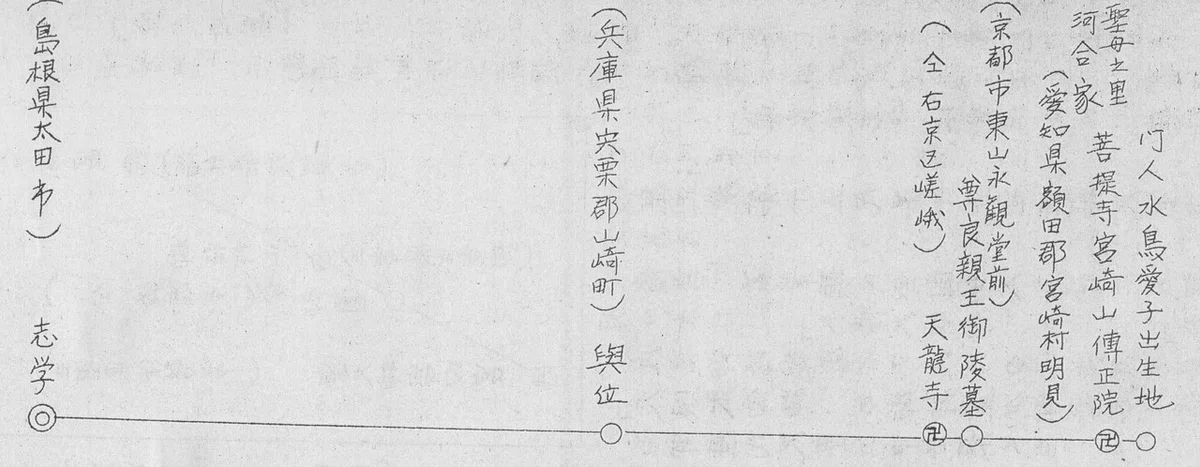 門人水鳥愛子出生地
聖母之里
河合家
菩提寺宮崎山傳正院
(愛知県額田郡宮崎村明見)
(京都市東山永観堂前)
尊良親王御陵墓
(仝右京区嵯峨)
天龍寺
卍
卍
(兵庫県宍粟郡山崎町)
與位
(島根県太田市)
志学